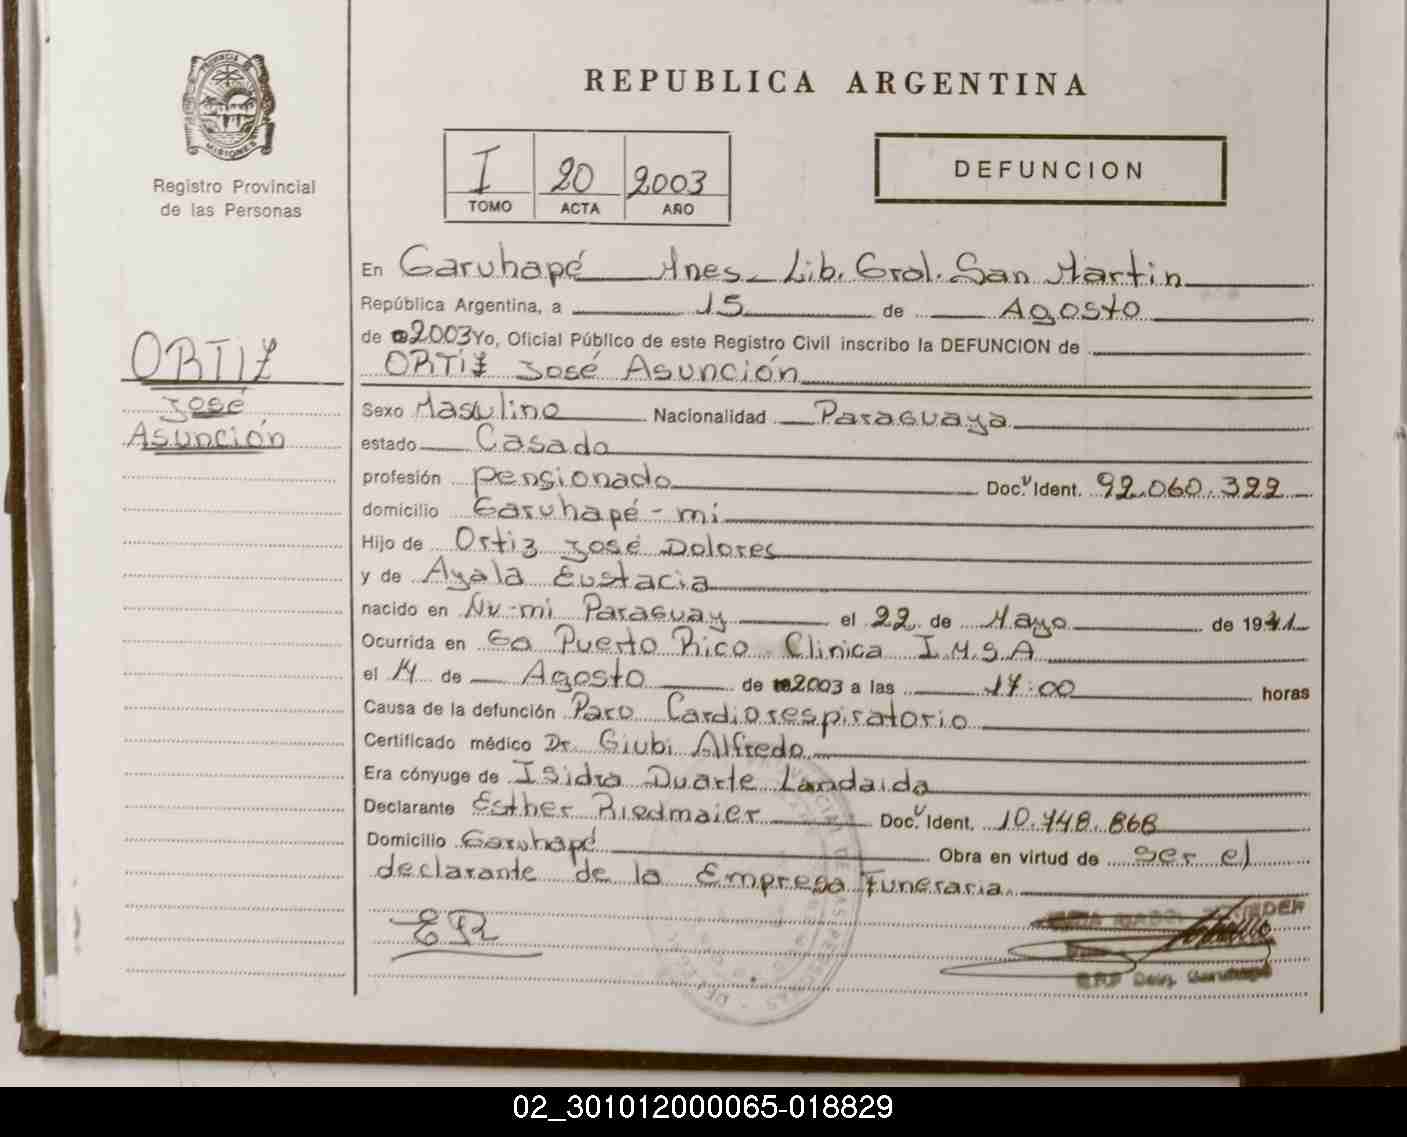 PROVINCIA DE
MISIONES
Registro Provincial
de las Personas
REPUBLICA ARGENTINA
I 20 2003
TOMO ACTA AÑO
DEFUNCION
En Garuhapé Mnes. Lib. Gral. San Martin
República Argentina, a 15 de Agosto
de 2003 Yo, Oficial Público de este Registro Civil inscribo la DEFUNCION de
ORTIZ José Asunción
ORTIZ
José
Asunción
Sexo Masculino Nacionalidad Paraguaya
estado Casado
profesión pensionado Doc. Ident. 92.060.322
domicilio Garuhapé-mi
Hijo de Ortiz José Dolores
y de Ayala Eustacia
nacido en Ñu-mi Paraguay el 22 de Mayo de 19
Ocurrida en Puerto Rico Clinica I.M.S.A
el 14 de Agosto de 2003 a las 17:00 horas
Causa de la defunción Paro Cardiorespiratorio
Certificado médico Dr. Giubi Alfredo
Era cónyuge de Isidra Duarte Landaida
Declarante Esther Riedmaier Doc. Ident. 10.748.868
Domicilio Garuhapé Obra en virtud de ser el
declarante de la Empresa Funeraria
ER
02_301012000065-018829